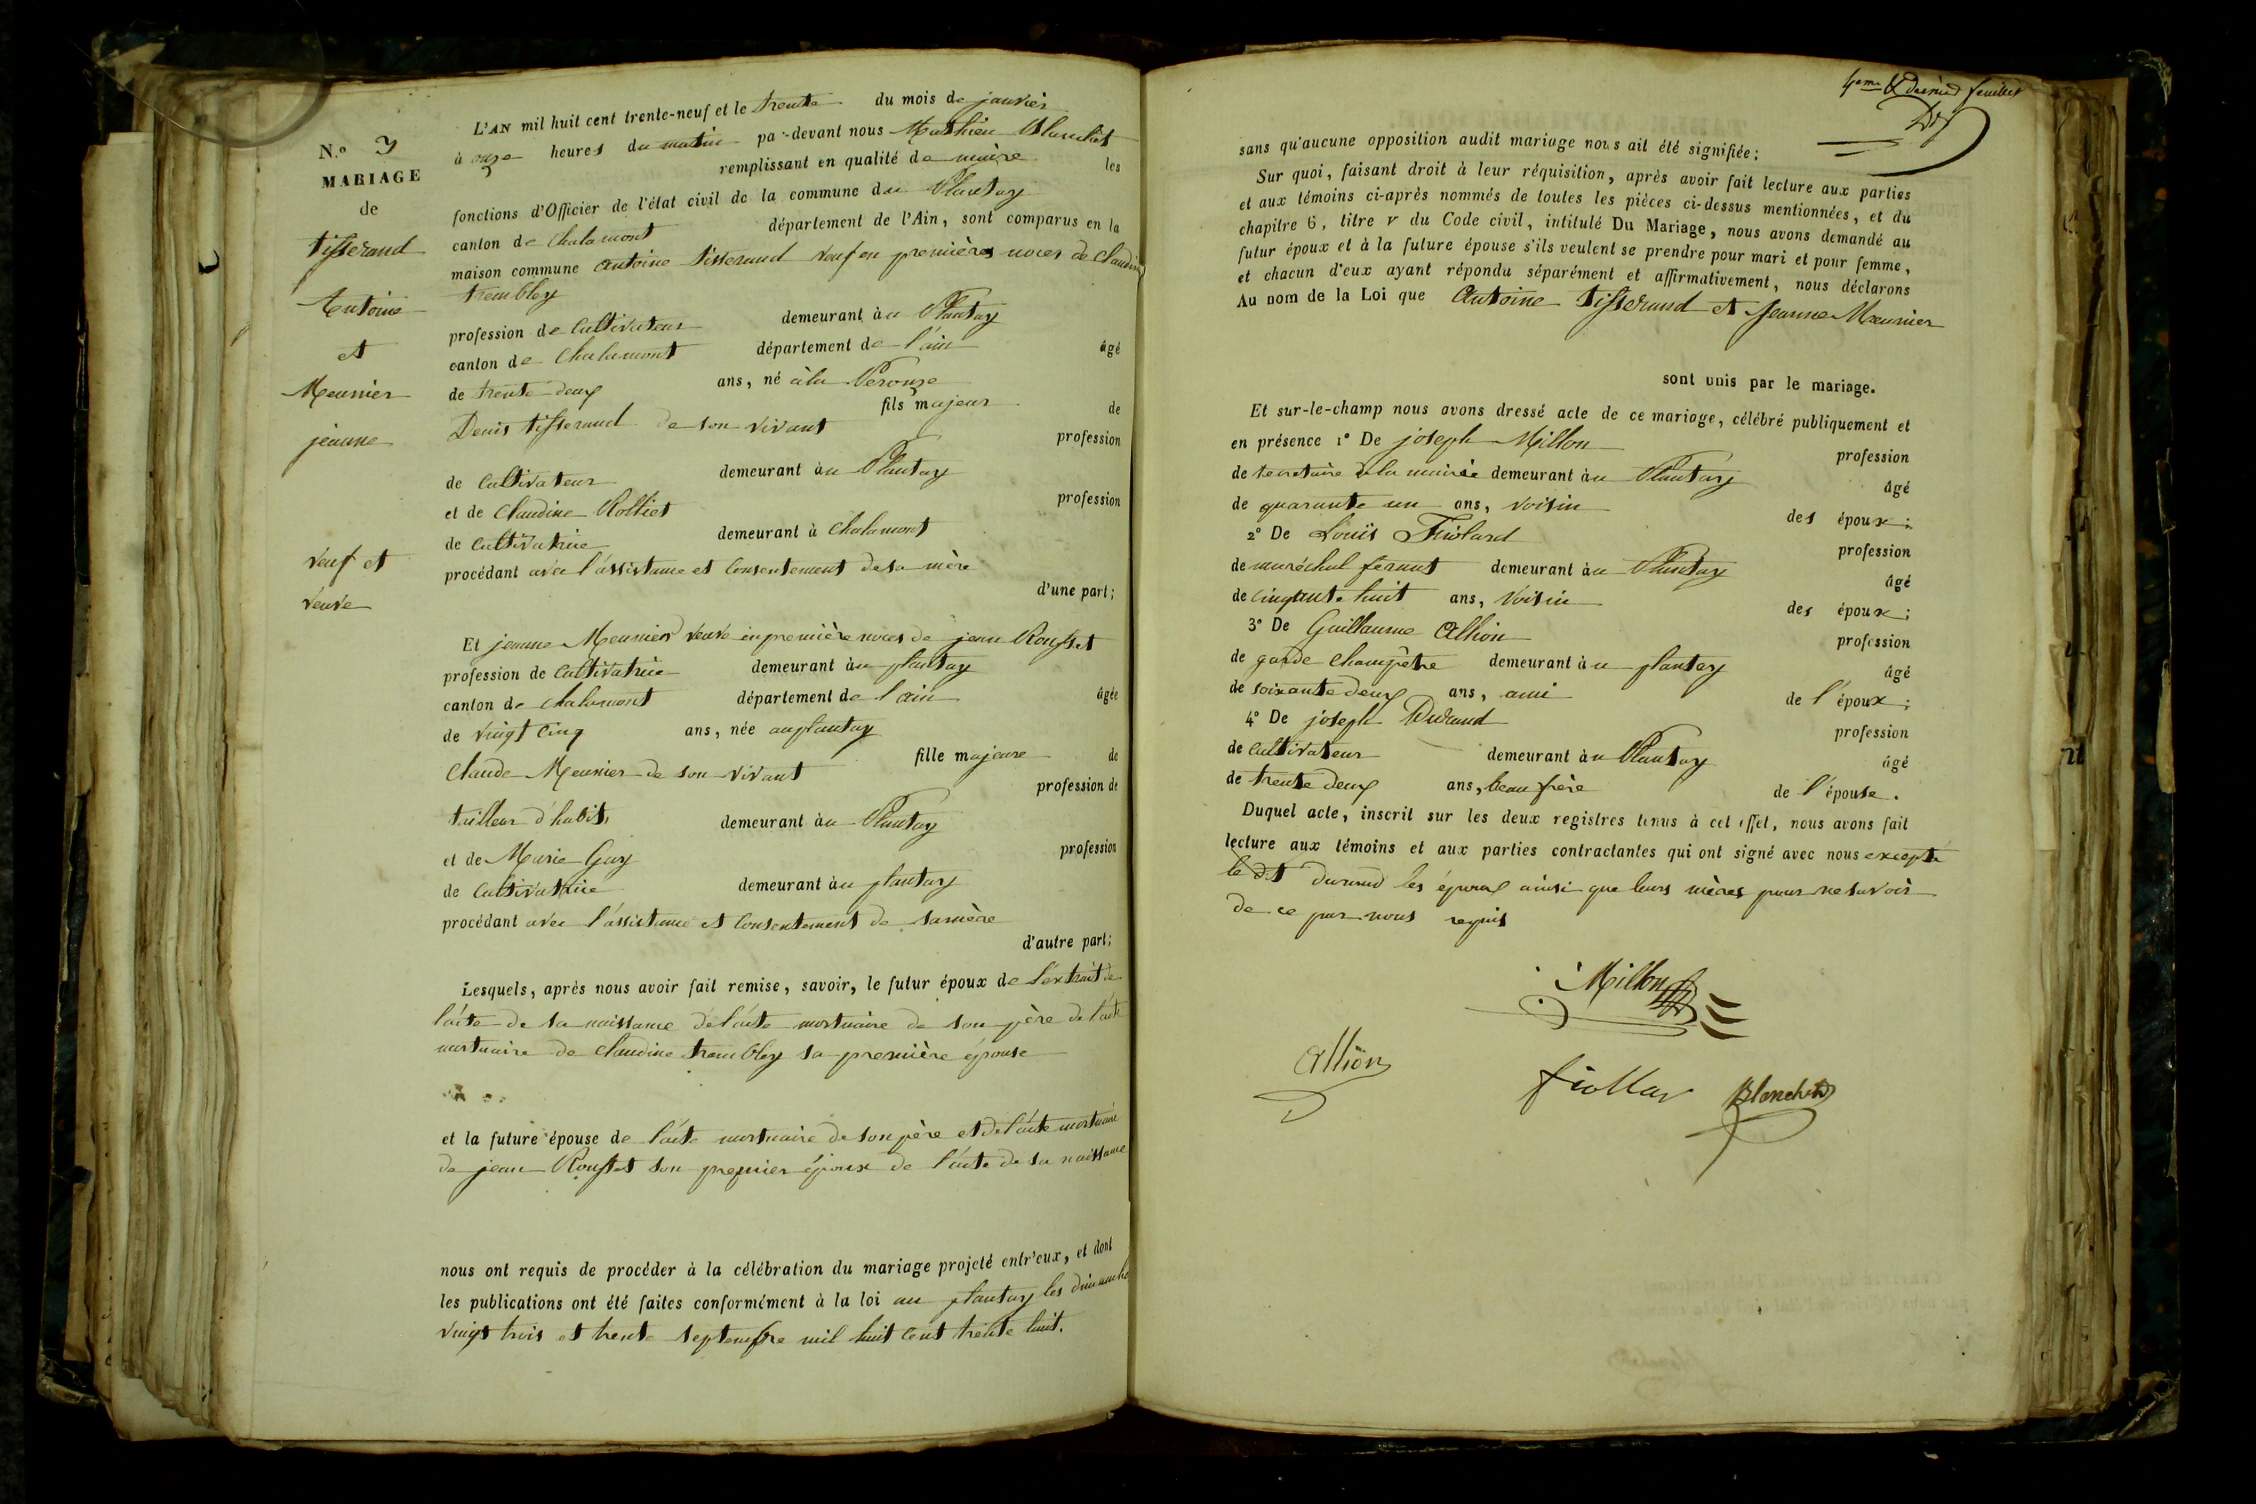 N.º 3
MARIAGE
de
tisserand
Antoine
et
Meunier
jeanne
veuf et
veuve
L'AN mil huit cent trente-neuf et le trente du mois de janvier
à onze heures du matin par-devant nous Mathieu Blanchet
remplissant en qualité de maire les
fonctions d'Officier de l'état civil de la commune du Plantay
canton de Chalamont département de l'Ain, sont comparus en la
maison commune antoine tisserand veuf en premières noces de Claudine
trembley
profession de Cultivateur demeurant au Plantay
canton de Chalamont département de l'ain âgé
de trente deux ans, né à la Perouze
fils majeur de
Denis tisserand de son vivant profession
de Cultivateur demeurant au Plantay
et de Claudine Rolliet profession
de Cultivatrice demeurant à Chalamont
procédant avec l'assistance et Consentement de sa mère
d'une part;
Et jeanne Meunier veuve en première noces de jean Rousset
profession de Cultivatrice demeurant au plantay
canton de chalamont département de l'ain âgée
de vingt Cinq ans, née au plantay
fille majeure de
Claude Meunier de son vivant profession de
tailleur d'habits demeurant au Plantay
et de Marie Guy profession
de Cultivatrice demeurant au plantay
procédant avec l'assistance et Consentement de sa mère
d'autre part;
Lesquels, après nous avoir fait remise, savoir, le futur époux de l'extrait de
l'acte de sa naissance de l'acte mortuaire de son père de l'acte
mortuaire de Claudine trembley sa première épouse
et la future épouse de l'acte mortuaire de son père et de l'acte mortuaire
de jean Rousset son premier époux de l'acte de sa naissance
nous ont requis de procéder à la célébration du mariage projeté entr'eux, et dont
les publications ont été faites conformément à la loi au plantay les dimanche
vingt trois et trente septembre mil huit Cent trente huit.
4eme & dernier feuillet
sans qu'aucune opposition audit mariage nous ait été signifiée;
Sur quoi, faisant droit à leur réquisition, après avoir fait lecture aux parties
et aux témoins ci-après nommés de toutes les pièces ci-dessus mentionnées, et du
chapitre 6, titre v du Code civil, intitulé Du Mariage, nous avons demandé au
futur époux et à la future épouse s'ils veulent se prendre pour mari et pour femme,
et chacun d'eux ayant répondu séparément et affirmativement, nous déclarons
Au nom de la Loi que Antoine tisserand et Jeanne Meunier
sont unis par le mariage.
Et sur-le-champ nous avons dressé acte de ce mariage, célébré publiquement et
en présence 1º De joseph Millon profession
de secretaire de la mairie demeurant au Plantay âgé
de quarante un ans, voisin des époux;
2º De Louis Fiolard profession
de maréchal ferant demeurant au Plantay âgé
de cinquante huit ans, Voisin des époux;
3º De Guillaume Allion profession
de garde champêtre demeurant au plantay âgé
de soixante deux ans, ami de l'époux;
4º De joseph Durand profession
de Cultivateur demeurant au Plantay âgé
de trente deux ans, beau frère de l'épouse.
Duquel acte, inscrit sur les deux registres tenus à cet effet, nous avons fait
lecture aux témoins et aux parties contractantes qui ont signé avec nous excepté
le dit durand les époux ainsi que leurs mères pour ne savoir
de ce par nous requis
Millon
Allion
fiollar Blanchet